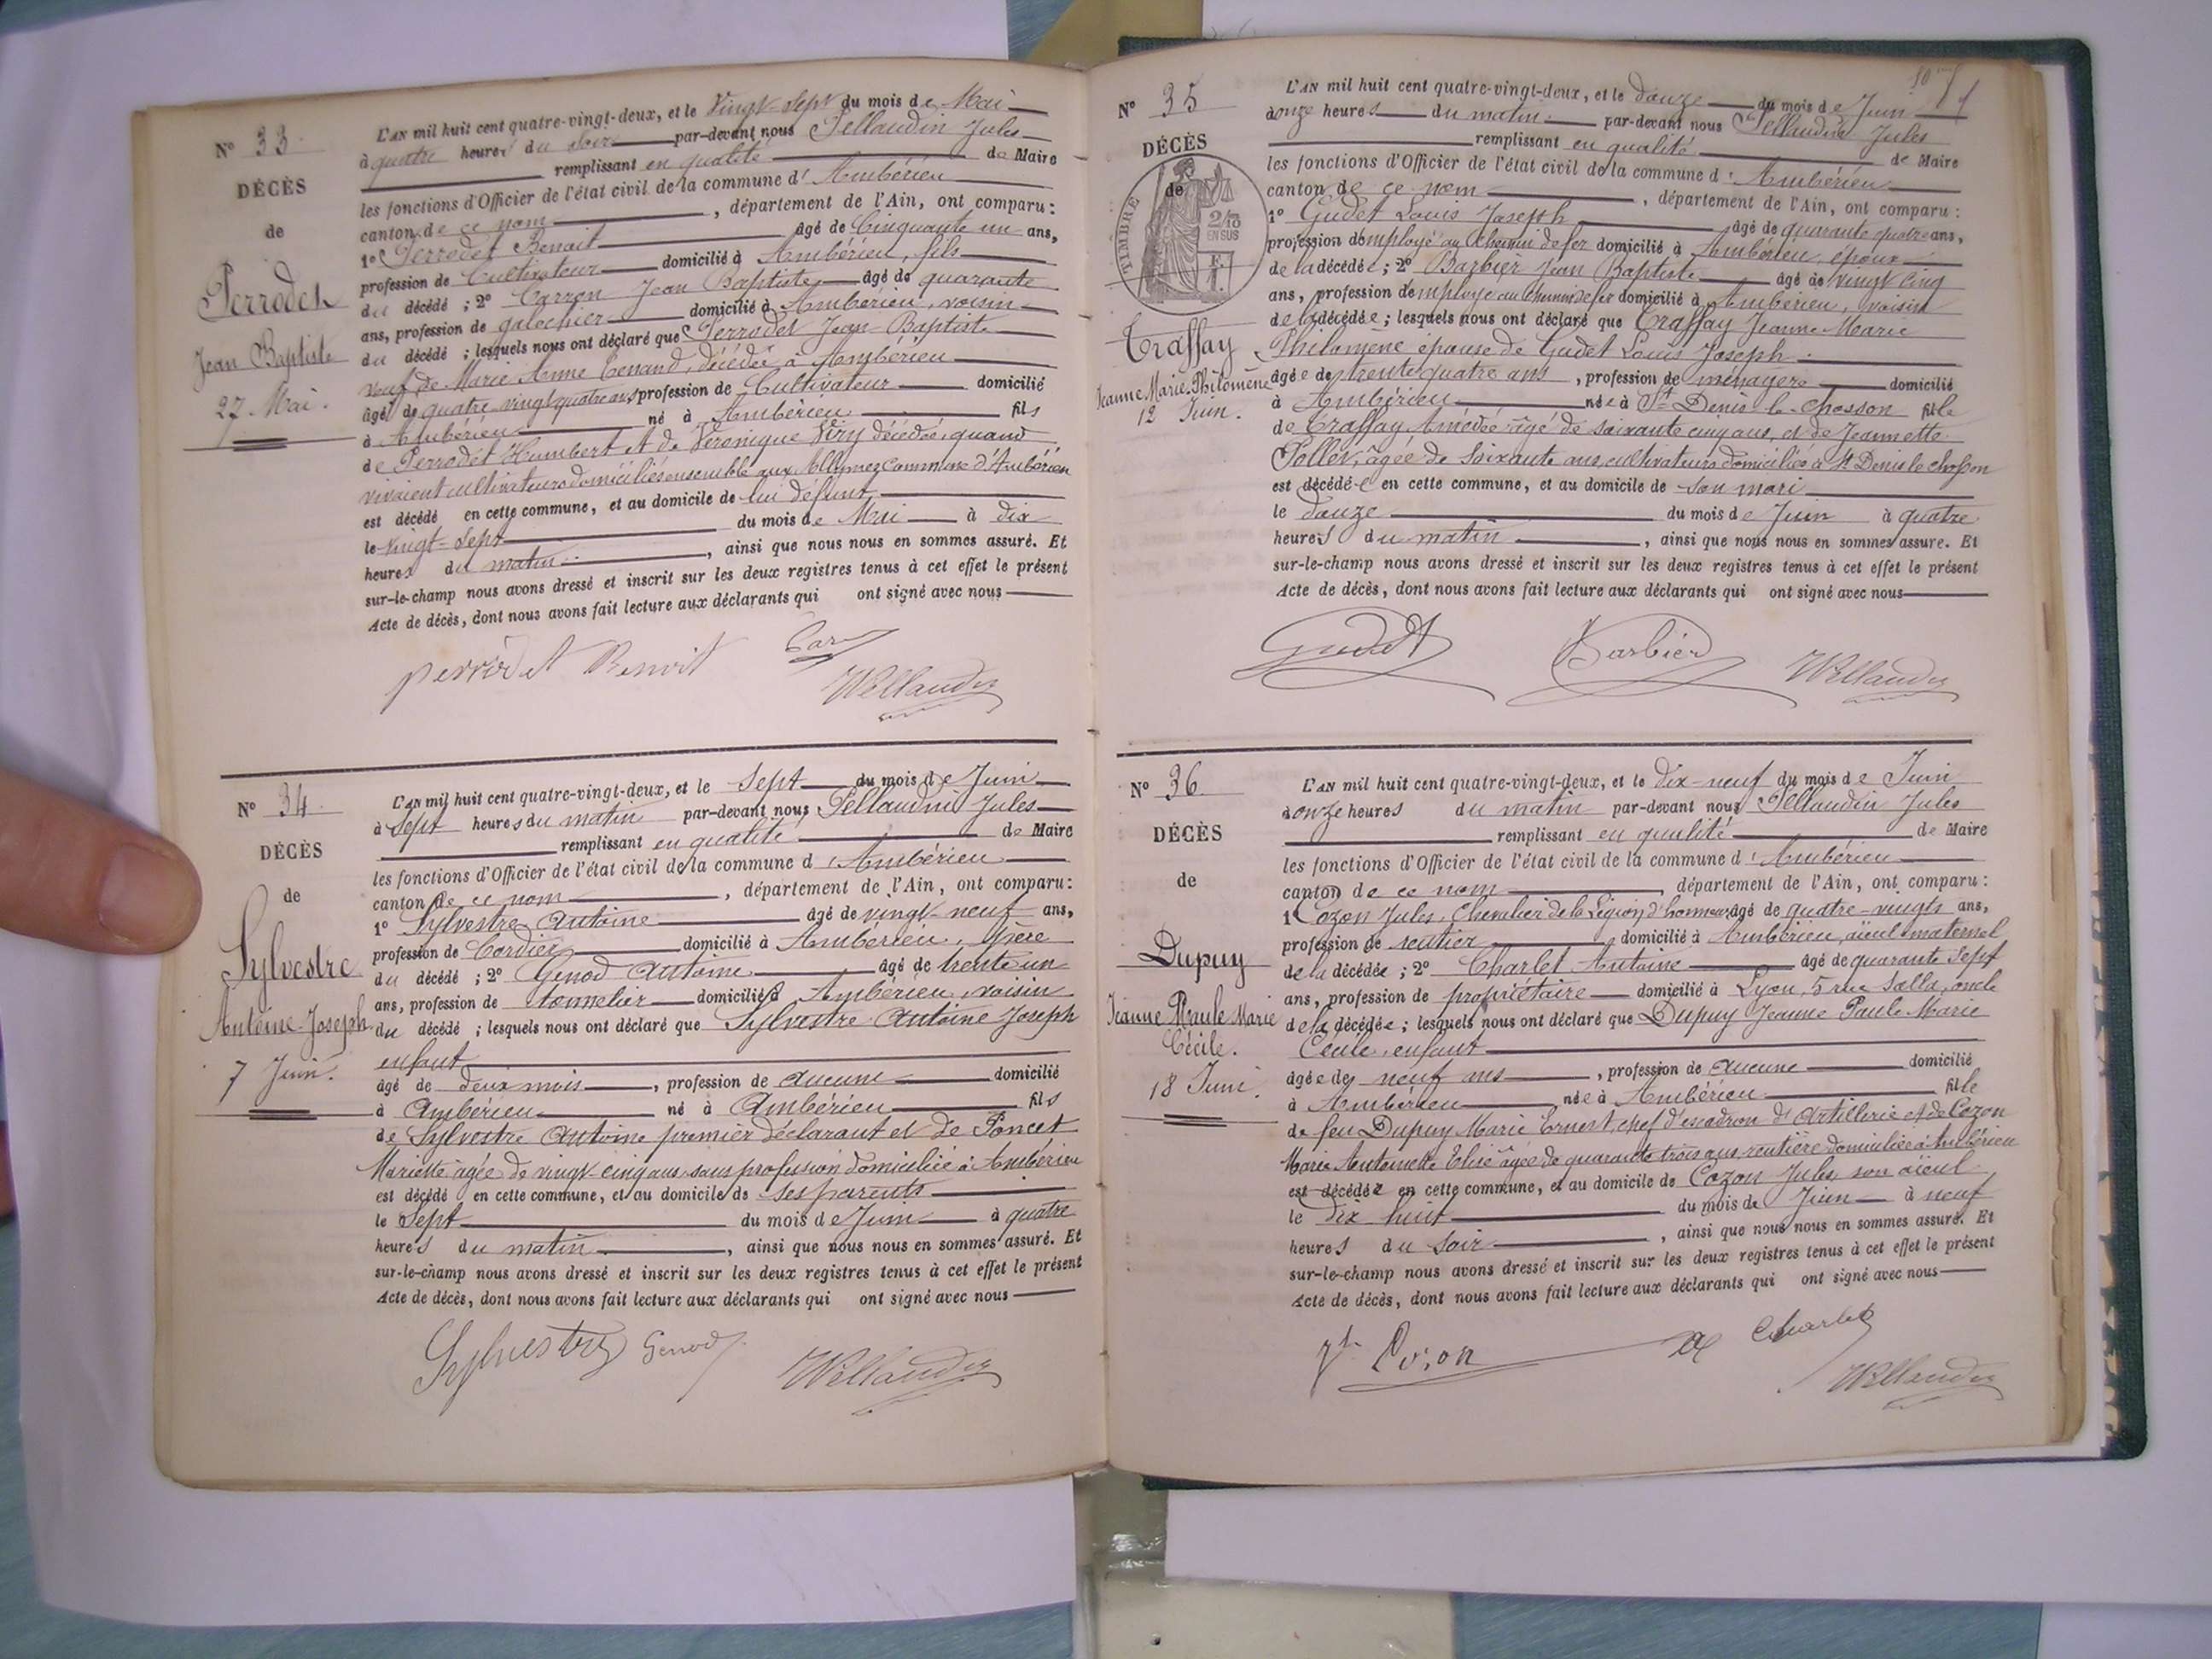 N° 33
DÉCÈS
de
Perrodet
Jean Baptiste
27 Mai.
L'AN mil huit cent quatre-vingt-deux, et le Vingt-Sept du mois de Mai
à quatre heures du soir par-devant nous Pellaudin Jules
remplissant en qualité de Maire
les fonctions d'Officier de l'état civil de la commune d'Ambérieu
canton de ce nom, département de l'Ain, ont comparu:
1° Perrodet Benoit âgé de Cinquante un ans,
profession de Cultivateur domicilié à Ambérieu, fils
du décédé; 2° Carron Jean Baptiste âgé de quarante
ans, profession de galochier domicilié à Ambérieu, voisin
du décédé; lesquels nous ont déclaré que Perrodet Jean-Baptiste
veuf de Marie Anne Tenand, décédée à Ambérieu
âgé de quatre vingt quatre ans, profession de Cultivateur domicilié
à Ambérieu né à Ambérieu fils
de Perrodet Humbert et de Véronique Viry décédés, quand
vivaient cultivateurs domiciliés ensemble aux Allymes commune d'Ambérieu
est décédé en cette commune, et au domicile de lui défunt
le vingt-sept du mois de Mai à dix
heures du matin, ainsi que nous nous en sommes assuré. Et
sur-le-champ nous avons dressé et inscrit sur les deux registres tenus à cet effet le présent
Acte de décès, dont nous avons fait lecture aux déclarants qui ont signé avec nous
perrodet Benoit Car
Pellaudin
N° 34
DÉCÈS
de
Sylvestre
Antoine-Joseph
7 Juin.
L'AN mil huit cent quatre-vingt-deux, et le Sept du mois de Juin
à Sept heures du matin par-devant nous Pellaudin Jules
remplissant en qualité de Maire
les fonctions d'Officier de l'état civil de la commune d'Ambérieu
canton de ce nom, département de l'Ain, ont comparu:
1° Sylvestre Antoine âgé de vingt-neuf ans,
profession de Cordier domicilié à Ambérieu, père
du décédé; 2° Genod Antoine âgé de trente un
ans, profession de tonnelier domicilié à Ambérieu, voisin
du décédé; lesquels nous ont déclaré que Sylvestre Antoine Joseph
enfant
âgé de deux mois, profession de aucune domicilié
à Ambérieu né à Ambérieu fils
de Sylvestre Antoine premier déclarant et de Poncet
Mariette âgée de vingt-cinq ans, sans profession domiciliée à Ambérieu
est décédé en cette commune, et au domicile de ses parents
le Sept du mois de Juin à quatre
heures du matin, ainsi que nous nous en sommes assuré. Et
sur-le-champ nous avons dressé et inscrit sur les deux registres tenus à cet effet le présent
Acte de décès, dont nous avons fait lecture aux déclarants qui ont signé avec nous
Sylvestre Genod
Pellaudin
N° 35
DÉCÈS
de
TIMBRE
2/10
EN SUS
Traffay
Jeanne Marie Philomène
12 Juin.
L'AN mil huit cent quatre-vingt-deux, et le douze du mois de Juin
à onze heures du matin par-devant nous Pellaudin Jules
remplissant en qualité de Maire
les fonctions d'Officier de l'état civil de la commune d'Ambérieu
canton de ce nom, département de l'Ain, ont comparu:
1° Gudet Louis Joseph âgé de quarante quatre ans,
profession d'employé au chemin de fer domicilié à Ambérieu, époux
de la décédée; 2° Barbier Jean Baptiste âgé de vingt cinq
ans, profession d'employé au chemin de fer domicilié à Ambérieu, voisin
de la décédée; lesquels nous ont déclaré que Traffay Jeanne Marie
Philomène épouse de Gudet Louis Joseph
âgée de trente quatre ans, profession de ménagère domicilié
à Ambérieu née à St Denis-le-chosson fille
de Traffay Amédée âgé de soixante cinq ans, et de Jeannette
Pollet, âgée de Soixante ans, cultivateurs domiciliés à St Denis le chosson
est décédée en cette commune, et au domicile de son mari
le douze du mois de Juin à quatre
heures du matin, ainsi que nous nous en sommes assuré. Et
sur-le-champ nous avons dressé et inscrit sur les deux registres tenus à cet effet le présent
Acte de décès, dont nous avons fait lecture aux déclarants qui ont signé avec nous
Gudet Barbier Pellaudin
N° 36
DÉCÈS
de
Dupuy
Jeanne Paule Marie
Cécile.
18 Juin.
L'AN mil huit cent quatre-vingt-deux, et le dix-neuf du mois de Juin
à onze heures du matin par-devant nous Pellaudin Jules
remplissant en qualité de Maire
les fonctions d'Officier de l'état civil de la commune d'Ambérieu
canton de ce nom, département de l'Ain, ont comparu:
1° Cozon Jules, Chevalier de la Légion d'honneur, âgé de quatre-vingts ans,
profession de rentier domicilié à Ambérieu, aïeul maternel
de la décédée; 2° Charlet Antoine âgé de quarante sept
ans, profession de propriétaire domicilié à Lyon, 5 rue Salla, oncle
de la décédée; lesquels nous ont déclaré que Dupuy Jeanne Paule Marie
Cécile, enfant
âgée de neuf ans, profession de aucune domicilié
à Ambérieu née à Ambérieu fille
de feu Dupuy Marie Ernest, chef d'escadron d'Artillerie et de Cozon
Marie Antoinette Elise âgée de quarante trois ans rentière domiciliée à Ambérieu
est décédée en cette commune, et au domicile de Cozon Jules, son aïeul
le dix huit du mois de Juin à neuf
heures du soir, ainsi que nous nous en sommes assuré. Et
sur-le-champ nous avons dressé et inscrit sur les deux registres tenus à cet effet le présent
Acte de décès, dont nous avons fait lecture aux déclarants qui ont signé avec nous
Cozon Charlet
Pellaudin